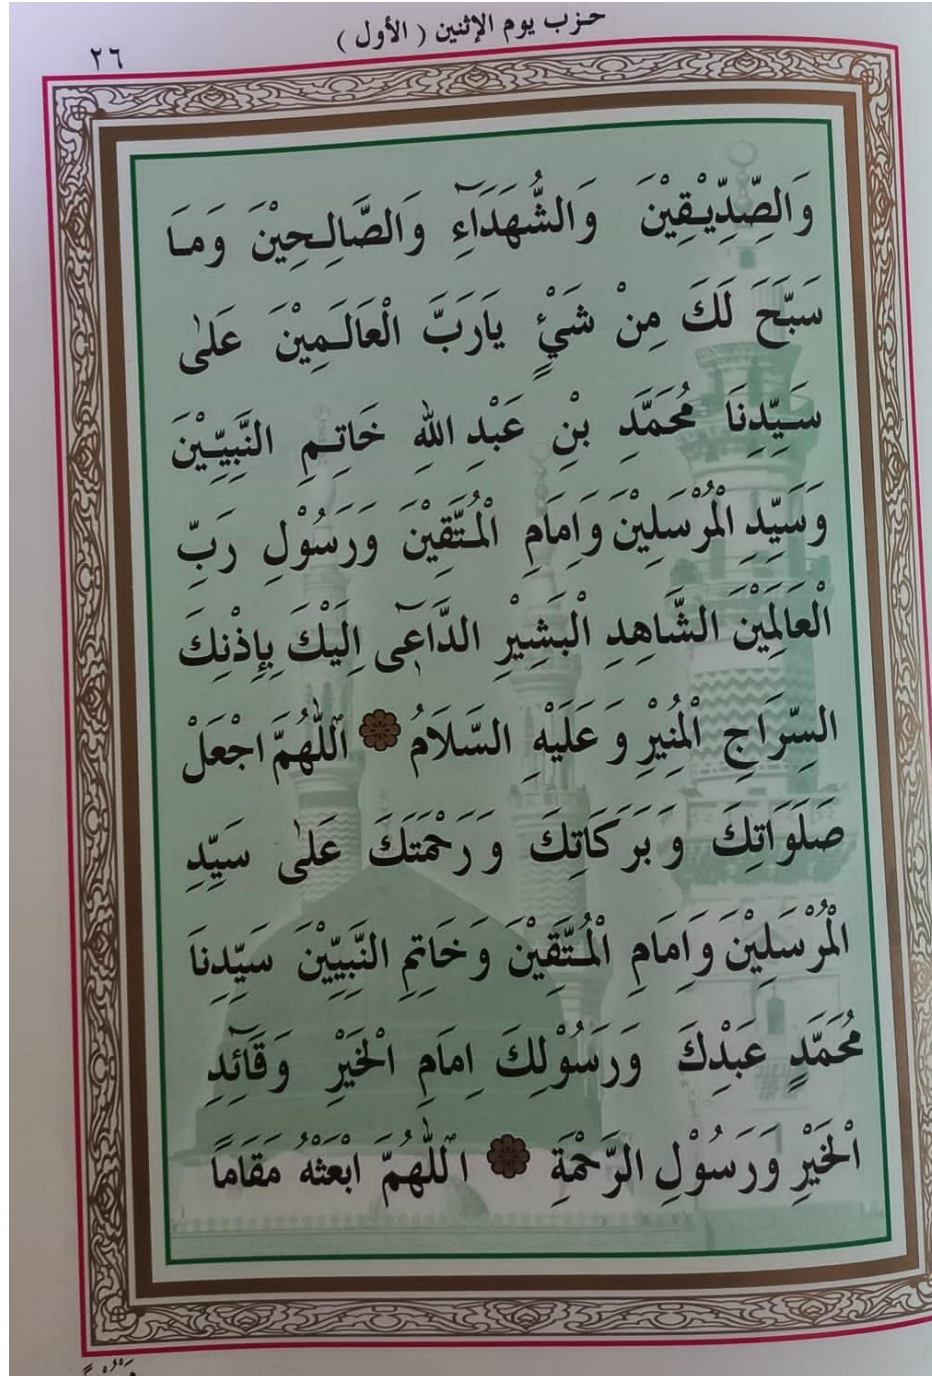 حزب يوم الإثنين ( الأول )
٢٦
وَالصِّدِّيْقِيْنَ وَالشُّهَدَآءِ وَالصَّالِحِيْنَ وَمَا
سَبَّحَ لَكَ مِنْ شَيْءٍ يَارَبَّ الْعَالَمِيْنَ عَلٰى
سَيِّدِنَا مُحَمَّدِ بْنِ عَبْدِ اللهِ خَاتِمِ النَّبِيِّيْنَ
وَسَيِّدِ الْمُرْسَلِيْنَ وَاِمَامِ الْمُتَّقِيْنَ وَرَسُوْلِ رَبِّ
الْعَالَمِيْنَ الشَّاهِدِ الْبَشِيْرِ الدَّاعِٓى اِلَيْكَ بِاِذْنِكَ
السِّرَاجِ الْمُنِيْرِ وَعَلَيْهِ السَّلَامُ اَللّٰهُمَّ اجْعَلْ
صَلَوَاتِكَ وَبَرَكَاتِكَ وَرَحْمَتَكَ عَلٰى سَيِّدِ
الْمُرْسَلِيْنَ وَاِمَامِ الْمُتَّقِيْنَ وَخَاتِمِ النَّبِيِّيْنَ سَيِّدِنَا
مُحَمَّدٍ عَبْدِكَ وَرَسُوْلِكَ اِمَامِ الْخَيْرِ وَقَآئِدِ
الْخَيْرِ وَرَسُوْلِ الرَّحْمَةِ اَللّٰهُمَّ ابْعَثْهُ مَقَامًا